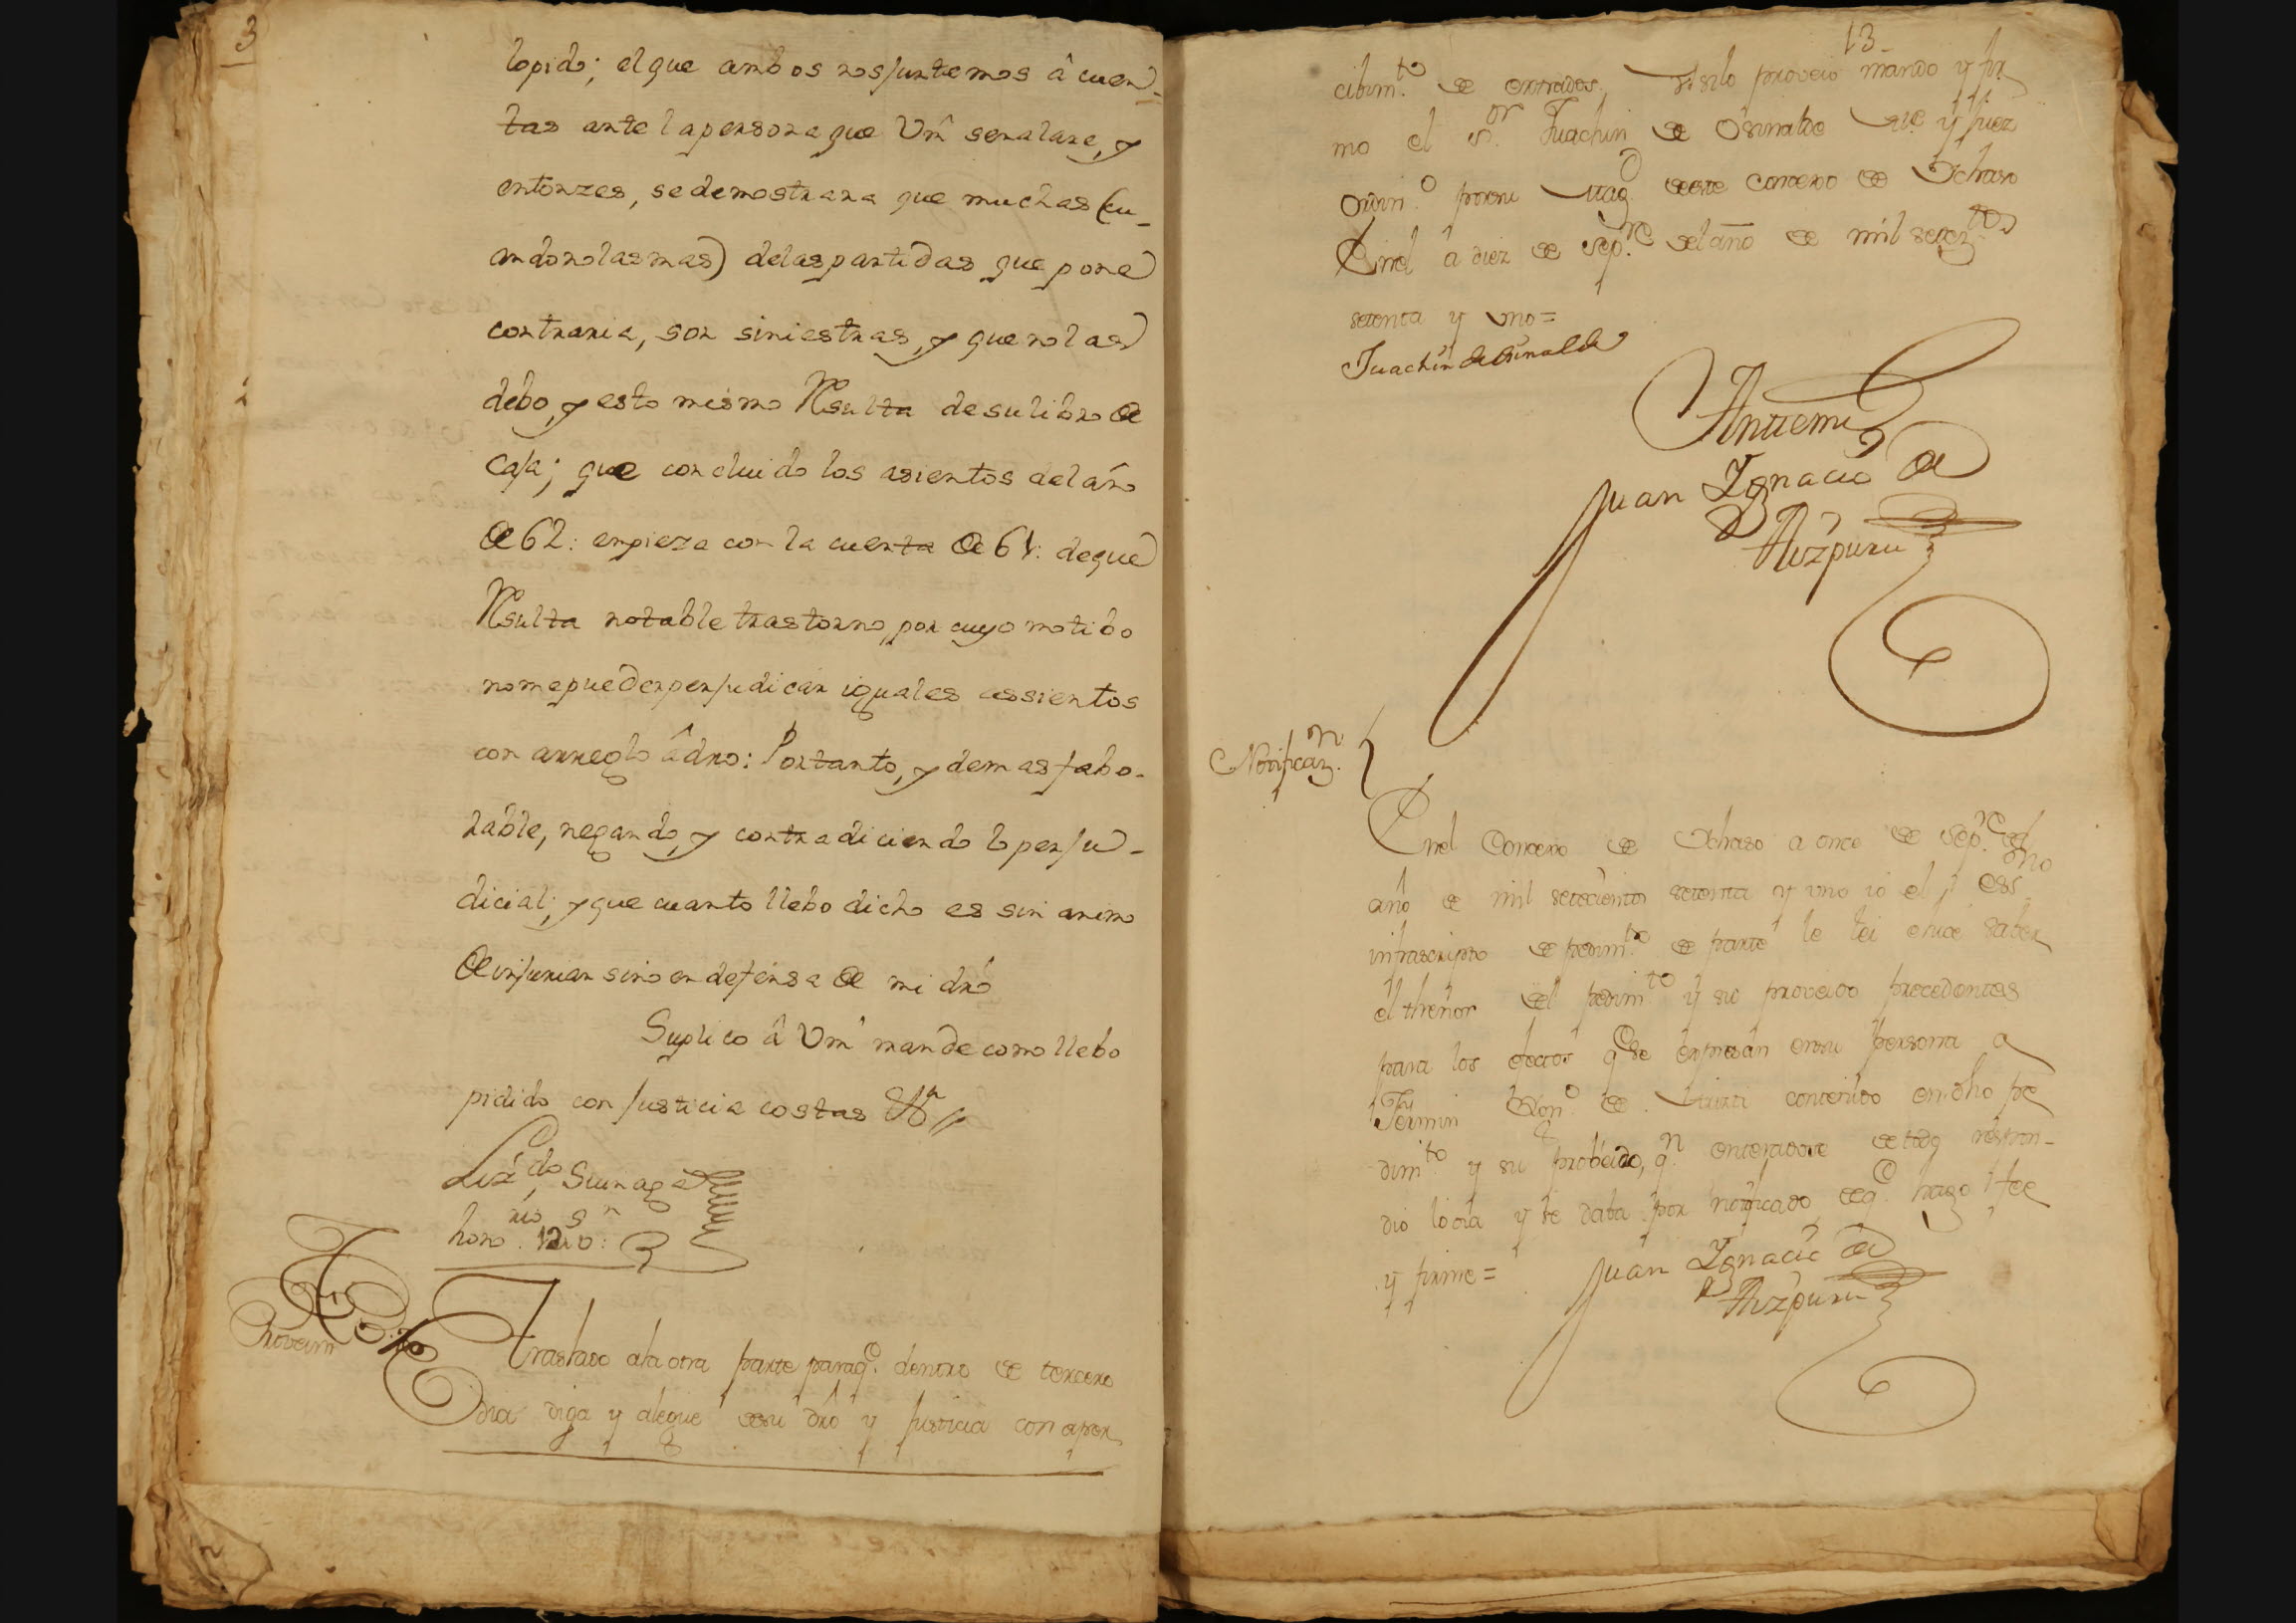 3
lo pido; el que ambos nos juntemos â cuen-
tas ante la persona que Vm̂ senalare, y
entonzes, se demostrara que muchas (cu-
ando no las mas) de las partidas que pone
contraria, son siniestras, y que no las
debo, y esto mismo Rsulta de su libro de
Caja; que concluido los asientos del año
de 62: empieza con la cuenta de 61: de que
Rsulta notable trastorno por cuyo motibo
no me pueden perjudicar iguales assientos
con arreglo â dro: Portanto, y demas fabo-
rable, negando, y contradiciendo lo perju-
dicial; y que cuanto llebo dicho es sin animo
de injuriar sino en defensa de mi dro
Suplico â Vm̂ mande como llebo
pidido con justicia costas &a
Lizdo Sunaga
honorios 12 
Proveimto
Traslado a la otra parte para qe. dentro de tercero
dia diga y alegue de su dro y justicia con aper
13-
cibimto. de extrados. Asi lo proveio mando y fir
mo el Sor. Juachin de Osinalde y Juez
Ordino. por su Magd. de este Concexo de Ichaso
En el â diez de Sepre. del año de mil setezto.s
setenta y uno=
Juachin de Osinalde
Antemi
Juan Ignacio de
Aizpuru
Notificazn.
En el Concexo de Ichaso a once de Sepre. del
año de mil setecientos setenta y uno io el essno
infrascripto de pedimto. de parte le lei e hice saber
el thenor del pedimto y su proveido precedentes
para los efectos qe se expresan en su persona a
Fermin Anto. de contenido en dho pe
dimto y su probeido, qn. enterado de todo respon-
dio lo oia y se daba por notificado de qe. hago fee
y firme=
Juan Ignacio de
Aizpuru